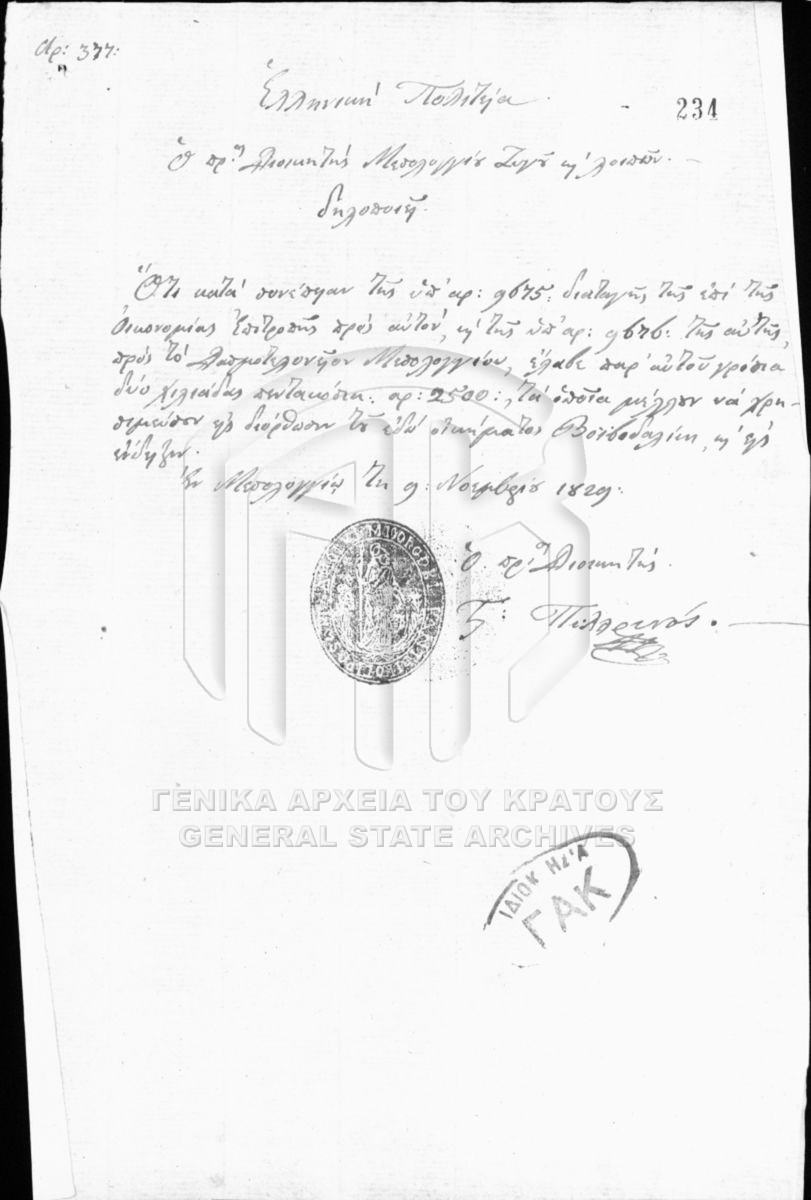 Αρ: 377:
Ἑλληνική Πολιτεία.
234
Ὁ πρ: Διοικητής Μεσολογγίου Ζυγοῦ κ λοιπῶν.
δηλοποιεῖ.
Ὅτι κατά συνέπειαν τῆς ὑπ' αρ: 9675: διαταγῆς τῆς ἐπί τῆς
Οἰκονομίας Ἐπιτροπῆς πρός αὐτόν, κ τῆς ὑπ' αρ: 9676: τῆς αὐτῆς,
πρός τό Δασμοτελωνεῖον Μεσολογγίου, ἔλαβε παρ' αὐτοῦ γρόσια
δύο χιλιάδας πεντακόσια: αρ: 2500:, τά ὁποῖα μέλλουν νά χρη-
σιμεύσουν εἰς διόρθωσιν τοῦ ἐδῶ οἰκήματος Βοϊβοδαλίκη, κ εἰς
ἔνδειξιν.
Ἐν Μεσολογγίῳ τῇ 9: Νοεμβρίου 1829:
Ὁ πρ: Διοικητής.
ΓΕΝΙΚΑ ΑΡΧΕΙΑ ΤΟΥ ΚΡΑΤΟΥΣ
GENERAL STATE ARCHIVES
ΓΑΚ